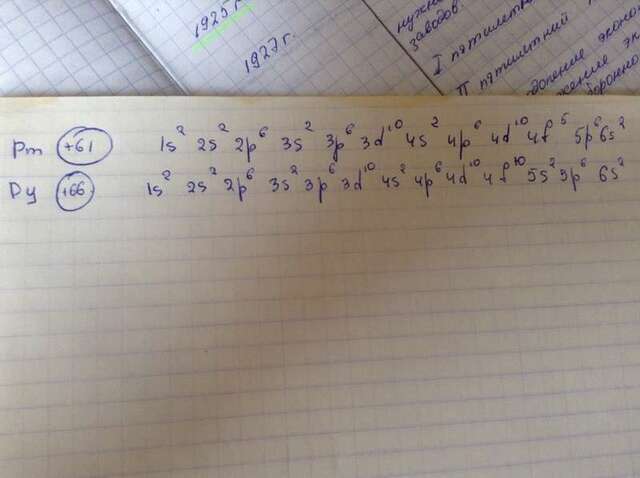 1925 г.
1927 г.
заводов.
I пятилетк
II пятилетний
Pm +61 1s² 2s² 2p⁶ 3s² 3p⁶ 3d¹⁰ 4s² 4p⁶ 4d¹⁰ 4f⁵ 5p⁶ 6s²
Dy +66 1s² 2s² 2p⁶ 3s² 3p⁶ 3d¹⁰ 4s² 4p⁶ 4d¹⁰ 4f¹⁰ 5s² 5p⁶ 6s²